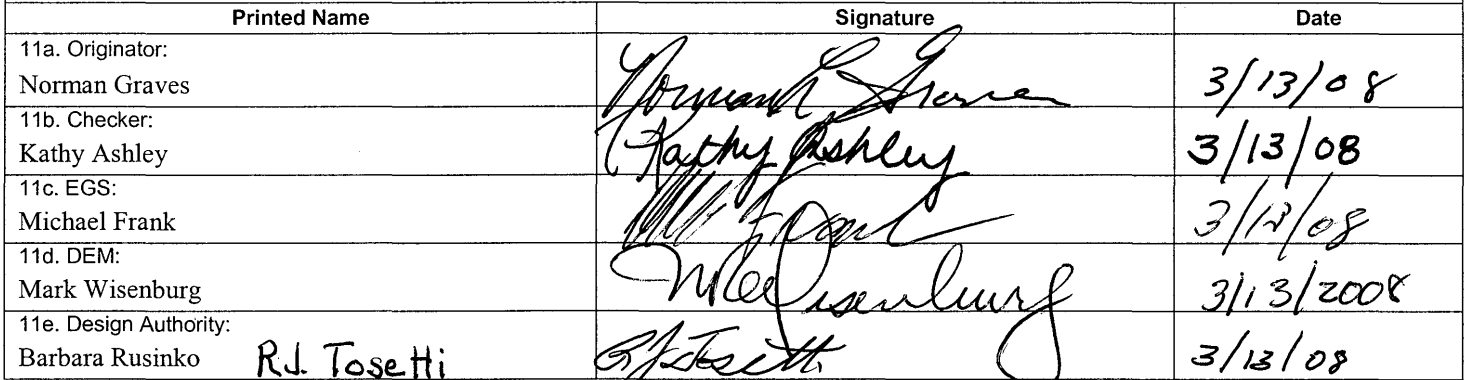 Printed Name Signature Date
11a. Originator:
Norman Graves Norman L Graves 3/13/08
11b. Checker:
Kathy Ashley Kathy Ashley 3/13/08
11c. EGS:
Michael Frank Frank 3/13/08
11d. DEM:
Mark Wisenburg M Wisenburg 3/13/2008
11e. Design Authority:
Barbara Rusinko R.J. Tosetti RJ Tosetti 3/13/08